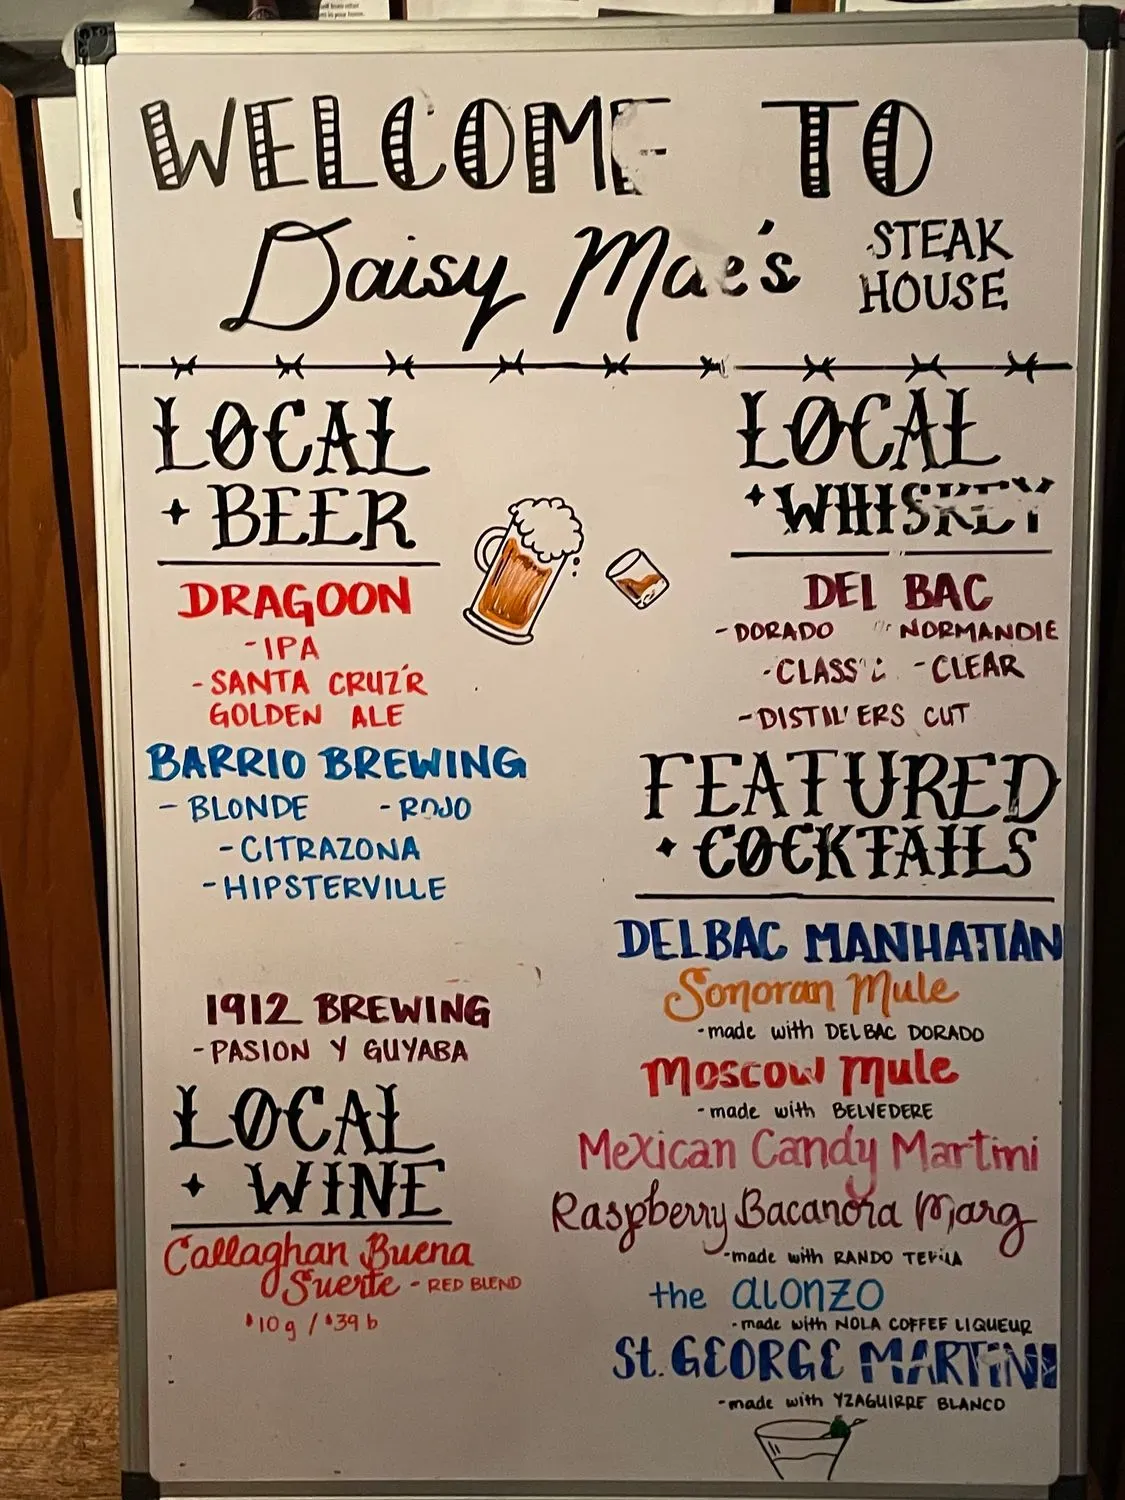 WELCOME TO
Daisy Mae's
STEAK
HOUSE
LOCAL
+ BEER
DRAGOON
-IPA
-SANTA CRUZ'R
GOLDEN ALE
BARRIO BREWING
- BLONDE - ROJO
-CITRAZONA
-HIPSTERVILLE
1912 BREWING
-PASION Y GUYABA
LOCAL
+ WINE
Callaghan Buena
Suerte - RED BLEND
$10 g / $39 b
LOCAL
+ WHISKEY
DEL BAC
-DORADO - NORMANDIE
-CLASSIC -CLEAR
-DISTILLERS CUT
FEATURED
+ COCKTAILS
DEL BAC MANHATTAN
Sonoran Mule
-made with DEL BAC DORADO
Moscow Mule
-made with BELVEDERE
Mexican Candy Martini
Raspberry Bacanora Marg
-made with RANDO
the alonzo
-made with NOLA COFFEE LIQUEUR
St. GEORGE MARTINI
-made with YZAGUIRRE BLANCO